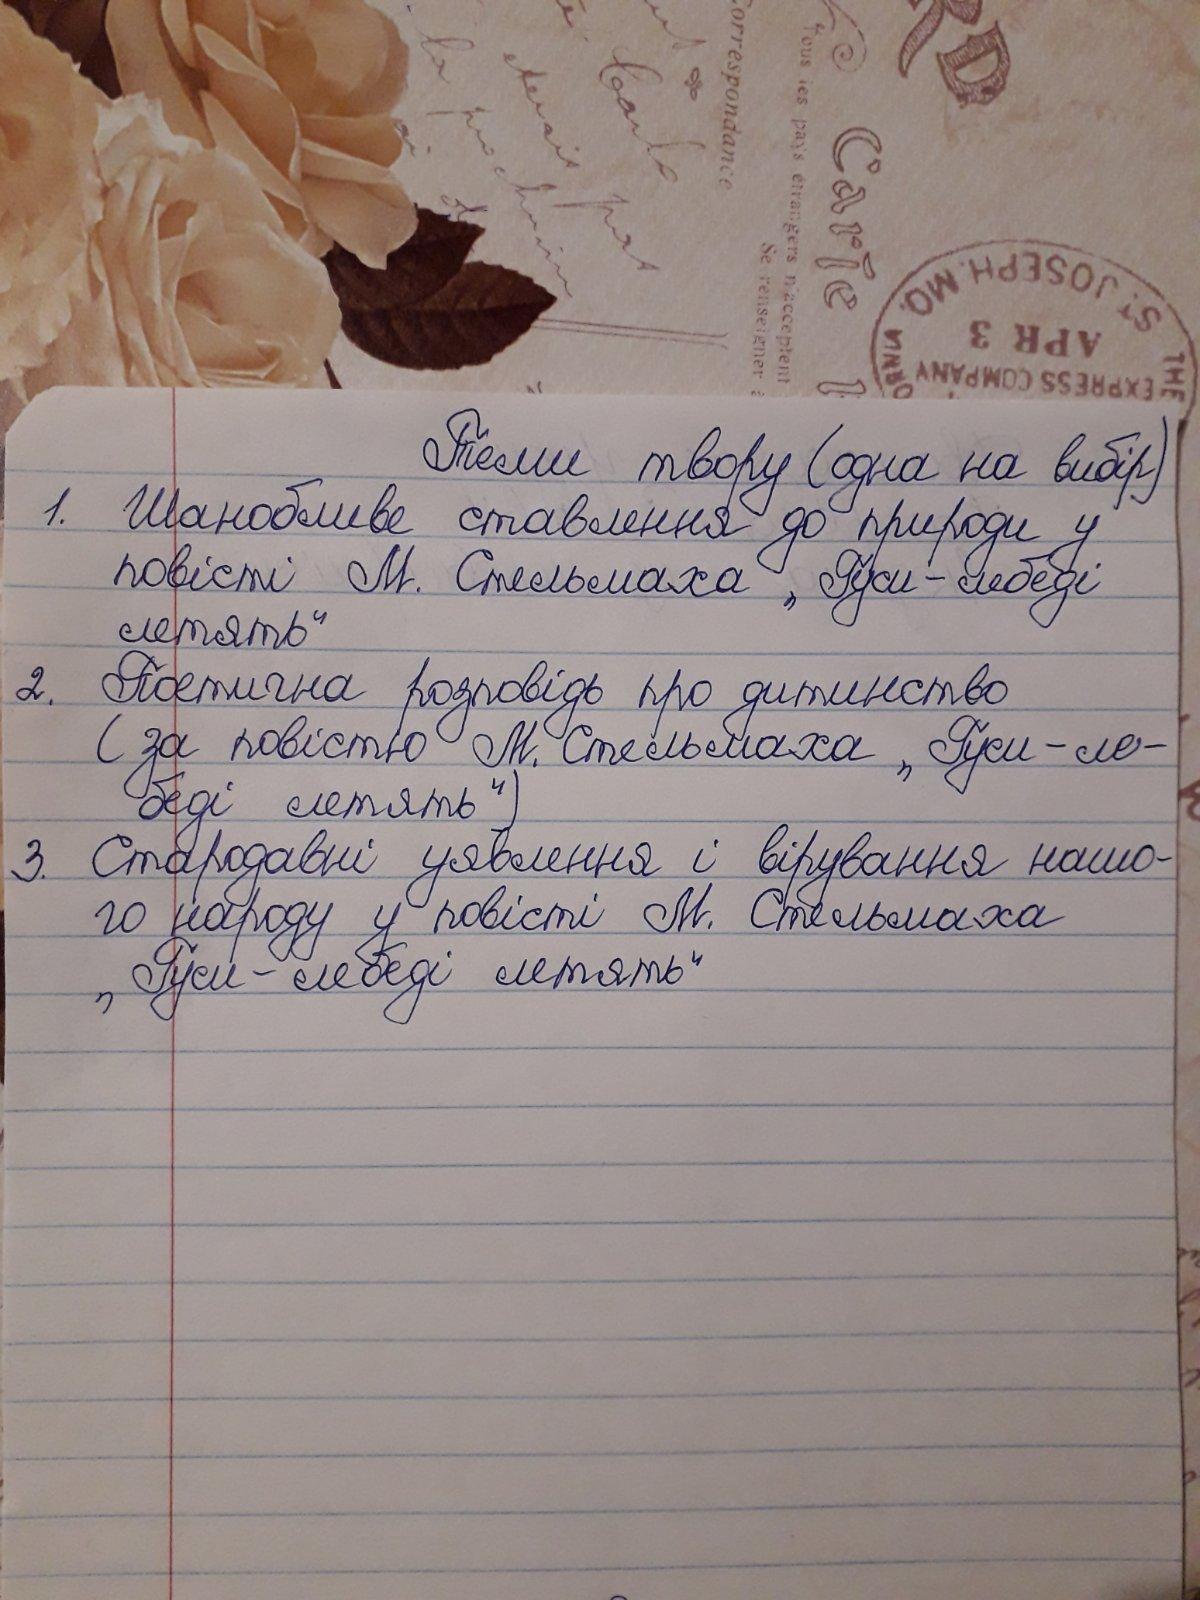 Carte
Correspondance
Tous les pays étrangers n'acceptent
Se renseigner à
ST. JOSEPH. MO.
APR 3
THE
EXPRESS COMPANY
Теми твору (одна на вибір)
1. Шанобливе ставлення до природи у
повісті М. Стельмаха „Гуси-лебеді
летять“
2. Поетична розповідь про дитинство
(за повістю М. Стельмаха „Гуси-ле-
беді летять“)
3. Стародавні уявлення і вірування нашо-
го народу у повісті М. Стельмаха
„Гуси-лебеді летять“